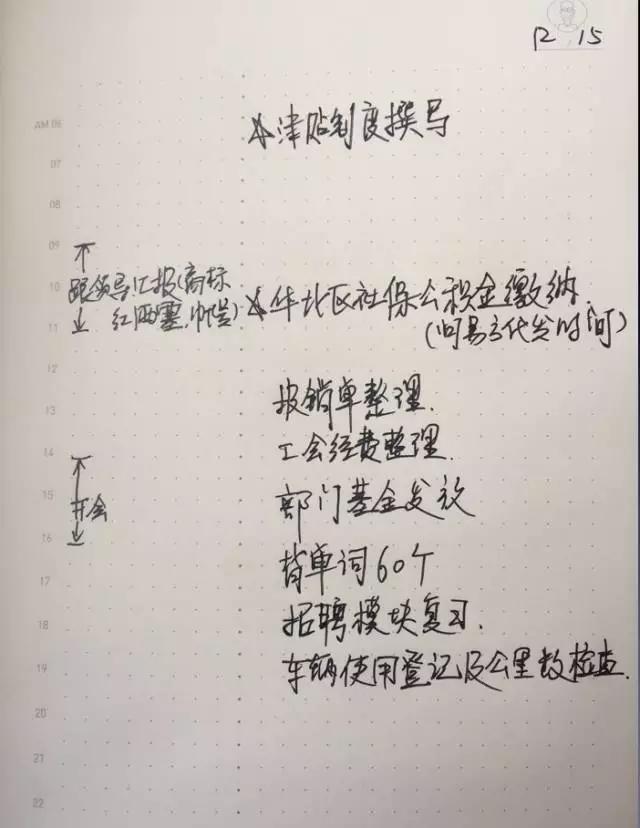 12 15
AM 06
☆津贴制度撰写
07
08
09
10
跟领导汇报(商标
红西塞,
☆华北区社保公积金缴纳.
11
(问易才代发时间)
12
报销单整理.
13
工会经费整理.
14
15
部门基金发放
开会
16
背单词60个
17
招聘模块复习.
18
车辆使用登记及公里数检查.
19
20
21
22